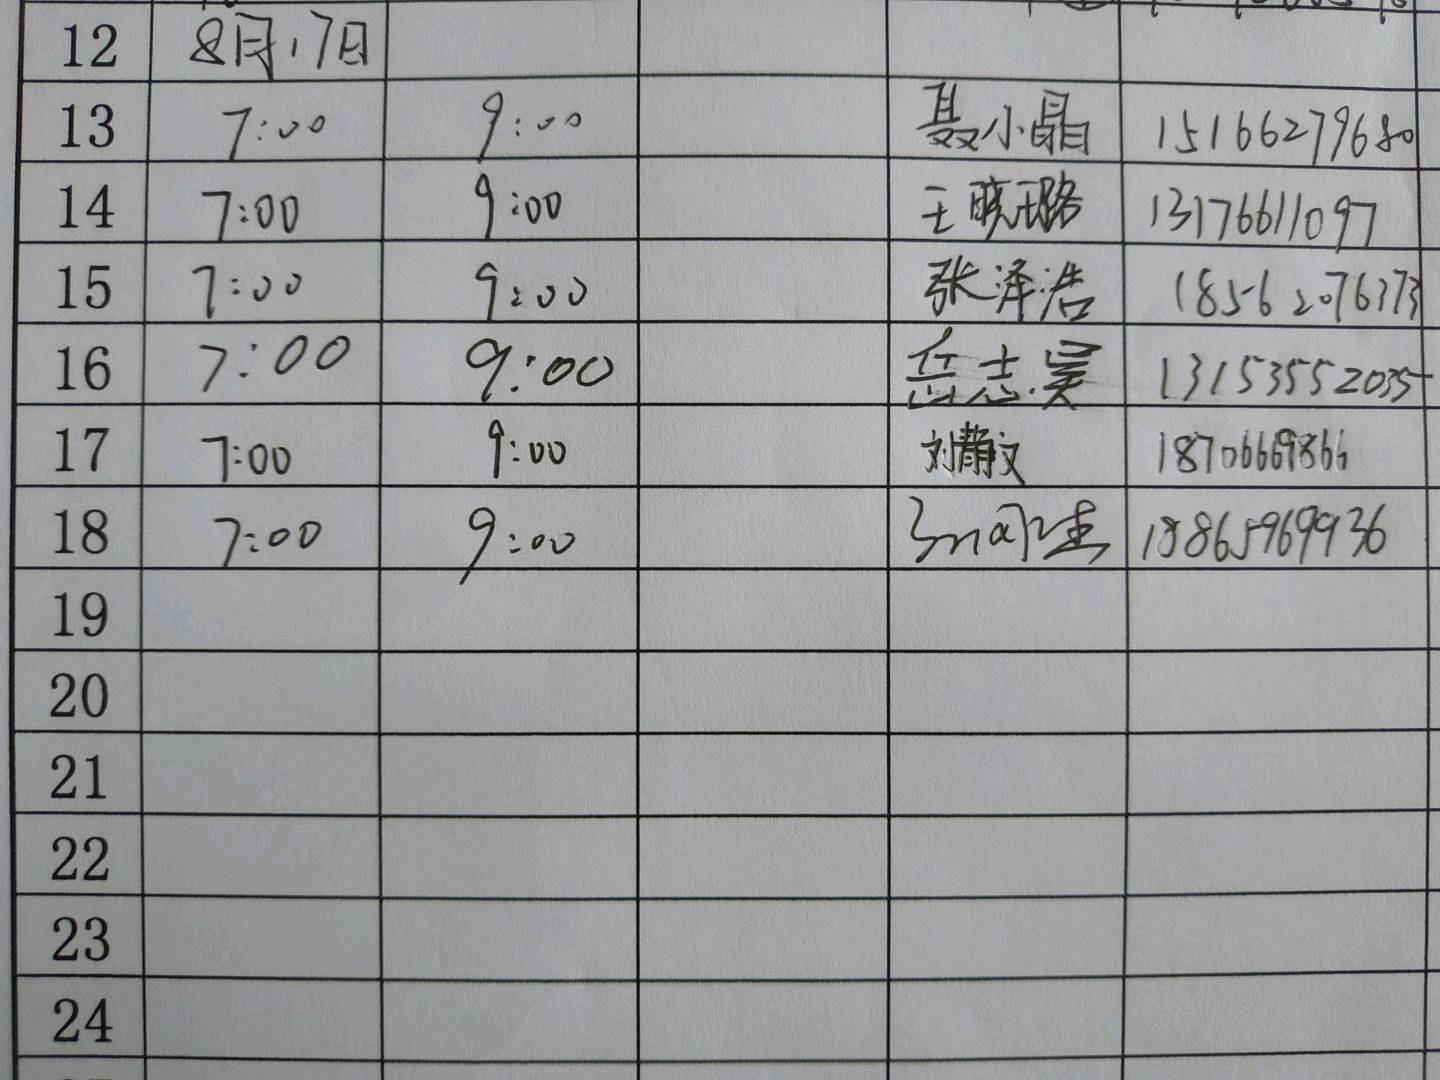 12 8月17日
13 7:00 9:00 聂小晶 15166279680
14 7:00 9:00 王晓璐 13176611097
15 7:00 9:00 张泽浩 18562076373
16 7:00 9:00 岳志昊 13153552035
17 7:00 9:00 刘静文 18706669866
18 7:00 9:00 18865969936
19
20
21
22
23
24